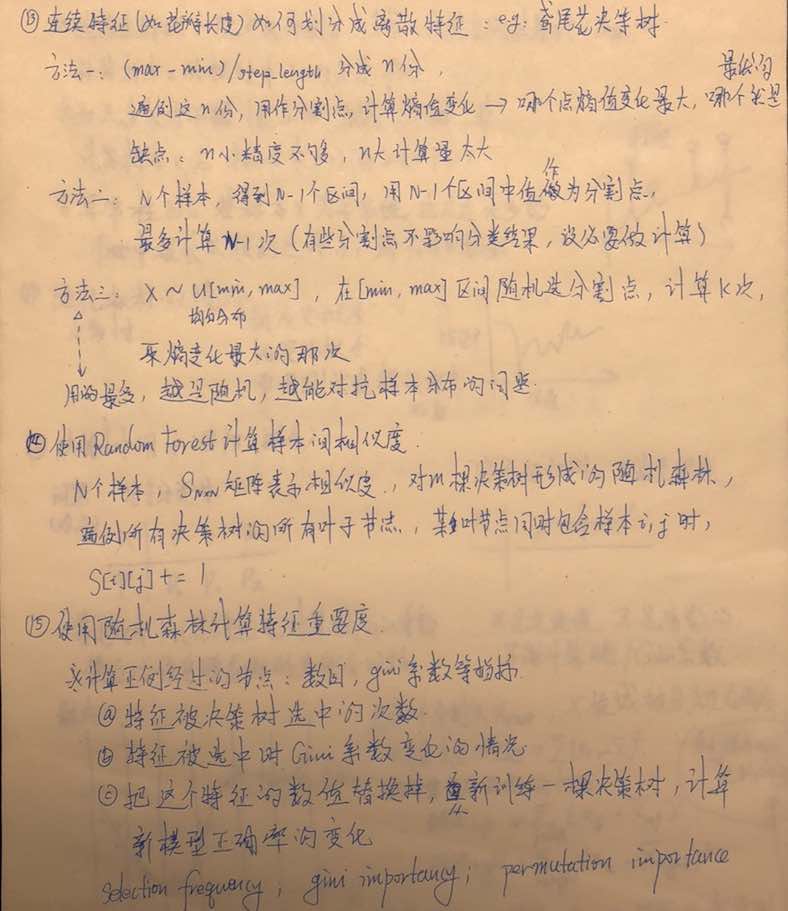 ⑬ 连续特征(如花瓣长度)如何划分成离散特征：eg: 鸢尾花决策树.
方法一：(max-min)/step_length 分成n份，
最优的
遍例这n份，用作分割点，计算熵值变化 → 哪个点熵值变化最大，哪个就是
缺点：n小精度不够，n大计算量太大
方法二：N个样本，得到N-1个区间，用N-1个区间中值作为分割点，
最多计算N-1次（有些分割点不影响分类结果，没必要做计算）
方法三：X ~ U[min, max]，在[min, max]区间随机选分割点，计算K次，
均匀分布
采熵变化最大的那次
用的最多，越是随机，越能对抗样本分布的问题.
⑭ 使用Random Forest计算样本间相似度.
N个样本，S_N×N 矩阵表示相似度，对m棵决策树形成的随机森林，
遍例所有决策树的所有叶子节点，某叶节点同时包含样本i,j时，
S[i][j] += 1
⑮ 使用随机森林计算特征重要度.
计算正例经过的节点：数目，gini系数等指标.
ⓐ 特征被决策树选中的次数.
ⓑ 特征被选中时Gini系数变化的情况.
ⓒ 把这个特征的数值替换掉，重新训练一棵决策树，计算
新模型正确率的变化
selection frequency; gini importancy; permutation importance